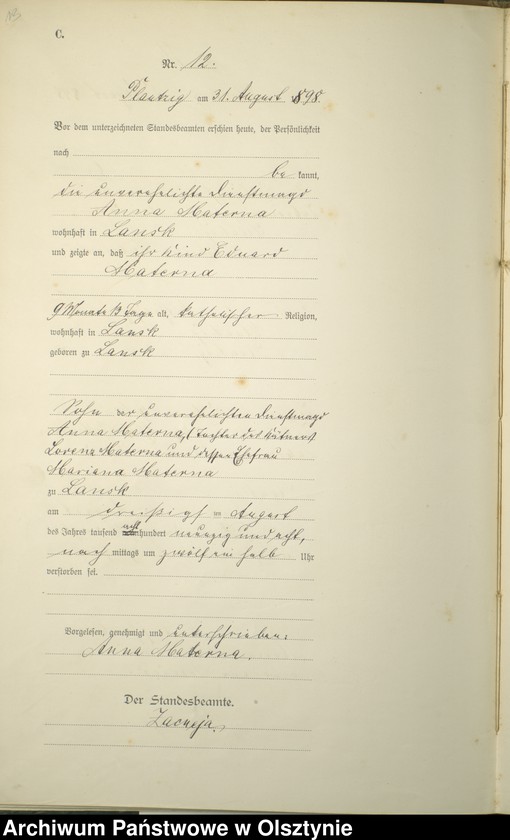 C.
Nr. 12.
Plautzig am 31. August 1898.
Vor dem unterzeichneten Standesbeamten erschien heute, der Persönlichkeit
nach
be kannt,
die unverehelichte Dienstmagd
Anna Materna
wohnhaft in Lansk
und zeigte an, daß ihr Kind Eduard
Materna
9 Monate 13 Tage alt, katholischer Religion,
wohnhaft in Lansk
geboren zu Lansk
Sohn der unverehelichten Dienstmagd
Anna Materna, (Tochter des Kätners
Lorenz Materna und dessen Ehefrau
Mariana Materna
zu Lansk
am dreißigst en August
des Jahres tausend acht hundert neunzig und acht,
nach mittags um zwölf ein halb Uhr
verstorben sei.
Vorgelesen, genehmigt und unterschrieben:
Anna Materna.
Der Standesbeamte.
Archiwum Państwowe w Olsztynie